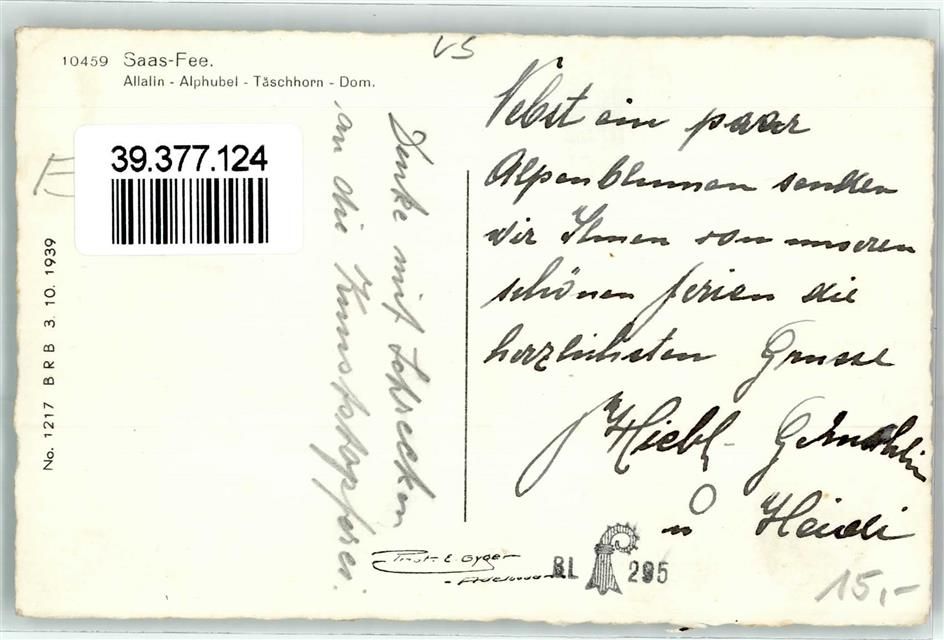 VS
10459 Saas-Fee.
Allalin - Alphubel - Täschhorn - Dom.
39.377.124
No. 1217 BRB 3. 10. 1939
Denke mit Schrecken
an die Kunststopferei.
Nebst ein paar
Alpenblumen senden
wir Ihnen von unseren
schönen Ferien die
herzlichsten Grüsse
Hiebl - Gemahlin
u Heidi
Phot. E. Gyger
- Adelboden
BL 295
15,-